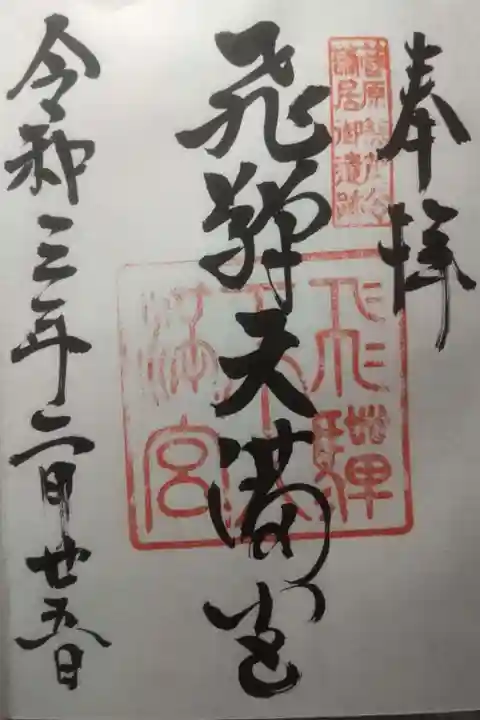 奉拝
菅原
謫居御遺跡
飛騨天満宮
飛騨天満宮
令和三年二月廿五日